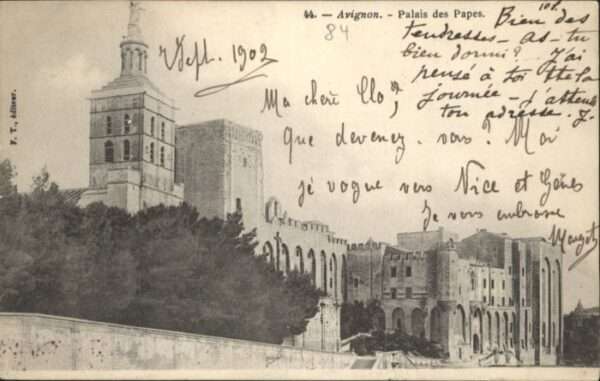 44. - Avignon. - Palais des Papes.
84
Bien des
tendresses - as-tu
bien dormi? J'ai
pensé à toi tte la
journée - j'attends
ton adresse. J.
7 Sept. 1902
Ma chère Clo,
Que devenez-vous? Moi
je vogue vers Nice et Gênes
Je vous embrasse
F. T., éditeur.